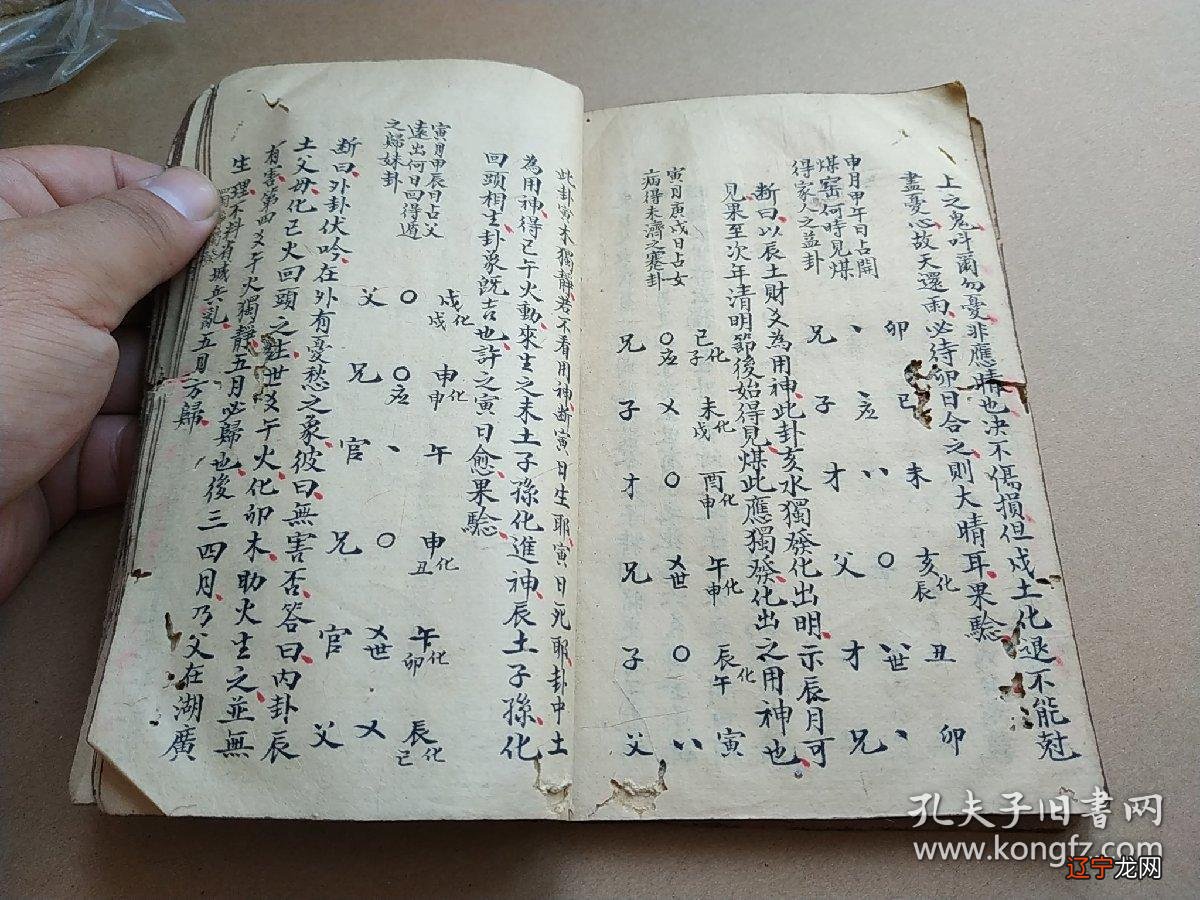 上之鬼吁爾勿憂非應晴也决不傷損但戍土化退不能尅
盡憂心故天還雨必待卯日合之則大晴耳果驗
申月甲午日占開
煤窑何時見煤
得家人之益卦
卯 巳 未 亥化辰 丑 卯
丶 丶应 丶丶 〇 丶丶世 丶
兄 子 才 父 才 兄
断曰以辰土財爻為用神此卦亥水獨發化出明示辰月可
見果至次年清明節後始得見煤此應獨發化出之用神也
寅月庚戍日占女
病得未濟之蹇卦
巳化子 未化戍 酉化申 午化申 辰化午 寅
〇应 乂 〇 乂世 〇 丶丶
兄 子 才 兄 子 父
此卦寅木獨静若不看用神断寅日生耶寅日死耶卦中土
為用神得巳午火動來生之未土子孫化進神辰土子孫化
回頭相生卦象既吉也許之寅日愈果驗
寅月甲辰日占父
遠出何日回得遁
之歸妹卦
戍化戍 申化申 午 申化丑 午化卯 辰化巳
〇 〇应 丶 〇 乂世 乂
父 兄 官 兄 官 父
断曰外卦伏吟在外有憂愁之象彼曰無害否答曰内卦辰
土父母化巳火回頭之生世爻午火化卯木助火生之並無
有害第四爻午火獨静五月必歸也後三四月乃父在湖廣
生理不料有城兵亂五月方歸
孔夫子旧书网
www.kongfz.com
辽宁龙网